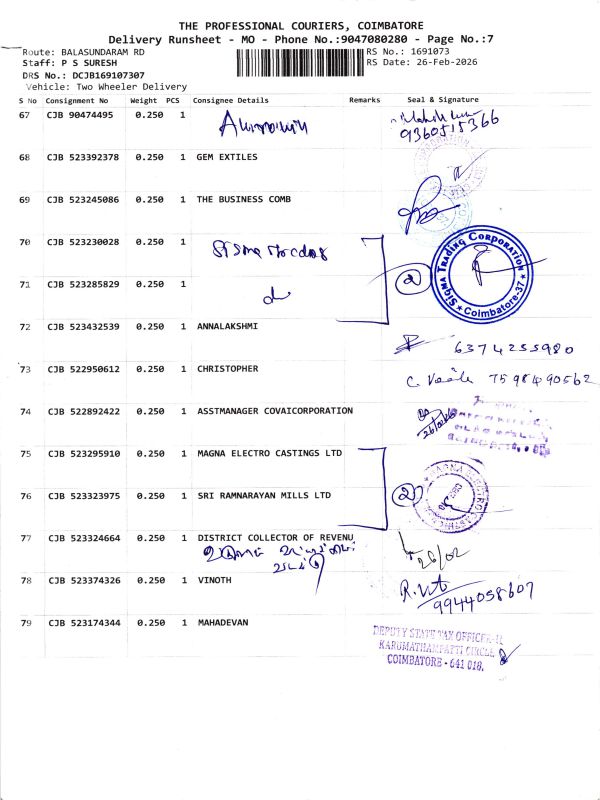 THE PROFESSIONAL COURIERS, COIMBATORE
Delivery Runsheet - MO - Phone No.:9047080280 - Page No.:7
Route: BALASUNDARAM RD
RS No.: 1691073
Staff: P S SURESH
RS Date: 26-Feb-2026
DRS No.: DCJB169107307
Vehicle: Two Wheeler Delivery
S No Consignment No Weight PCS Consignee Details Remarks Seal & Signature
67 CJB 90474495 0.250 1
9360515366
68 CJB 523392378 0.250 1 GEM EXTILES
69 CJB 523245086 0.250 1 THE BUSINESS COMB
70 CJB 523230028 0.250 1
SIGMA TRADING CORPORATION
Coimbatore-37
2
71 CJB 523285829 0.250 1
72 CJB 523432539 0.250 1 ANNALAKSHMI
6374255980
73 CJB 522950612 0.250 1 CHRISTOPHER
7598490562
74 CJB 522892422 0.250 1 ASSTMANAGER COVAICORPORATION
75 CJB 523295910 0.250 1 MAGNA ELECTRO CASTINGS LTD
2
76 CJB 523323975 0.250 1 SRI RAMNARAYAN MILLS LTD
77 CJB 523324664 0.250 1 DISTRICT COLLECTOR OF REVENU
26/02
78 CJB 523374326 0.250 1 VINOTH
9944058607
79 CJB 523174344 0.250 1 MAHADEVAN
DEPUTY STATE TAX OFFICER-II
KARUMATHAMPATTI CIRCLE
COIMBATORE - 641 018.